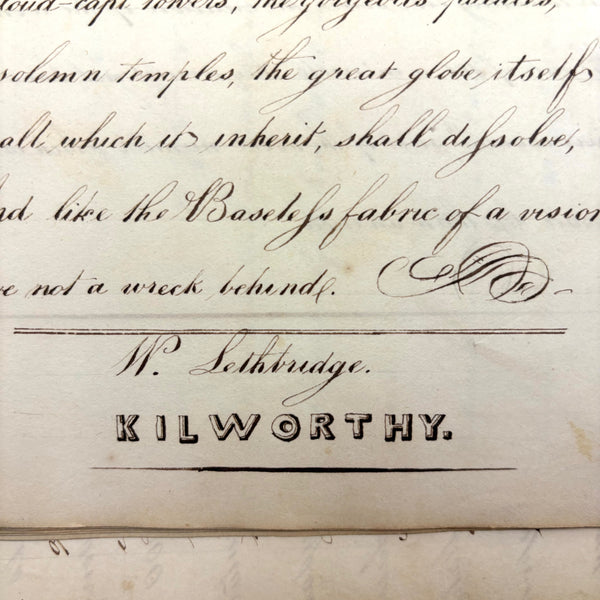 loud-capt towers, the gorgeous palaces,
solemn temples, the great globe itself
all which it inherit, shall dissolve,
nd like the Baseless fabric of a vision
ve not a wreck behind.
W. Lethbridge.
KILWORTHY.